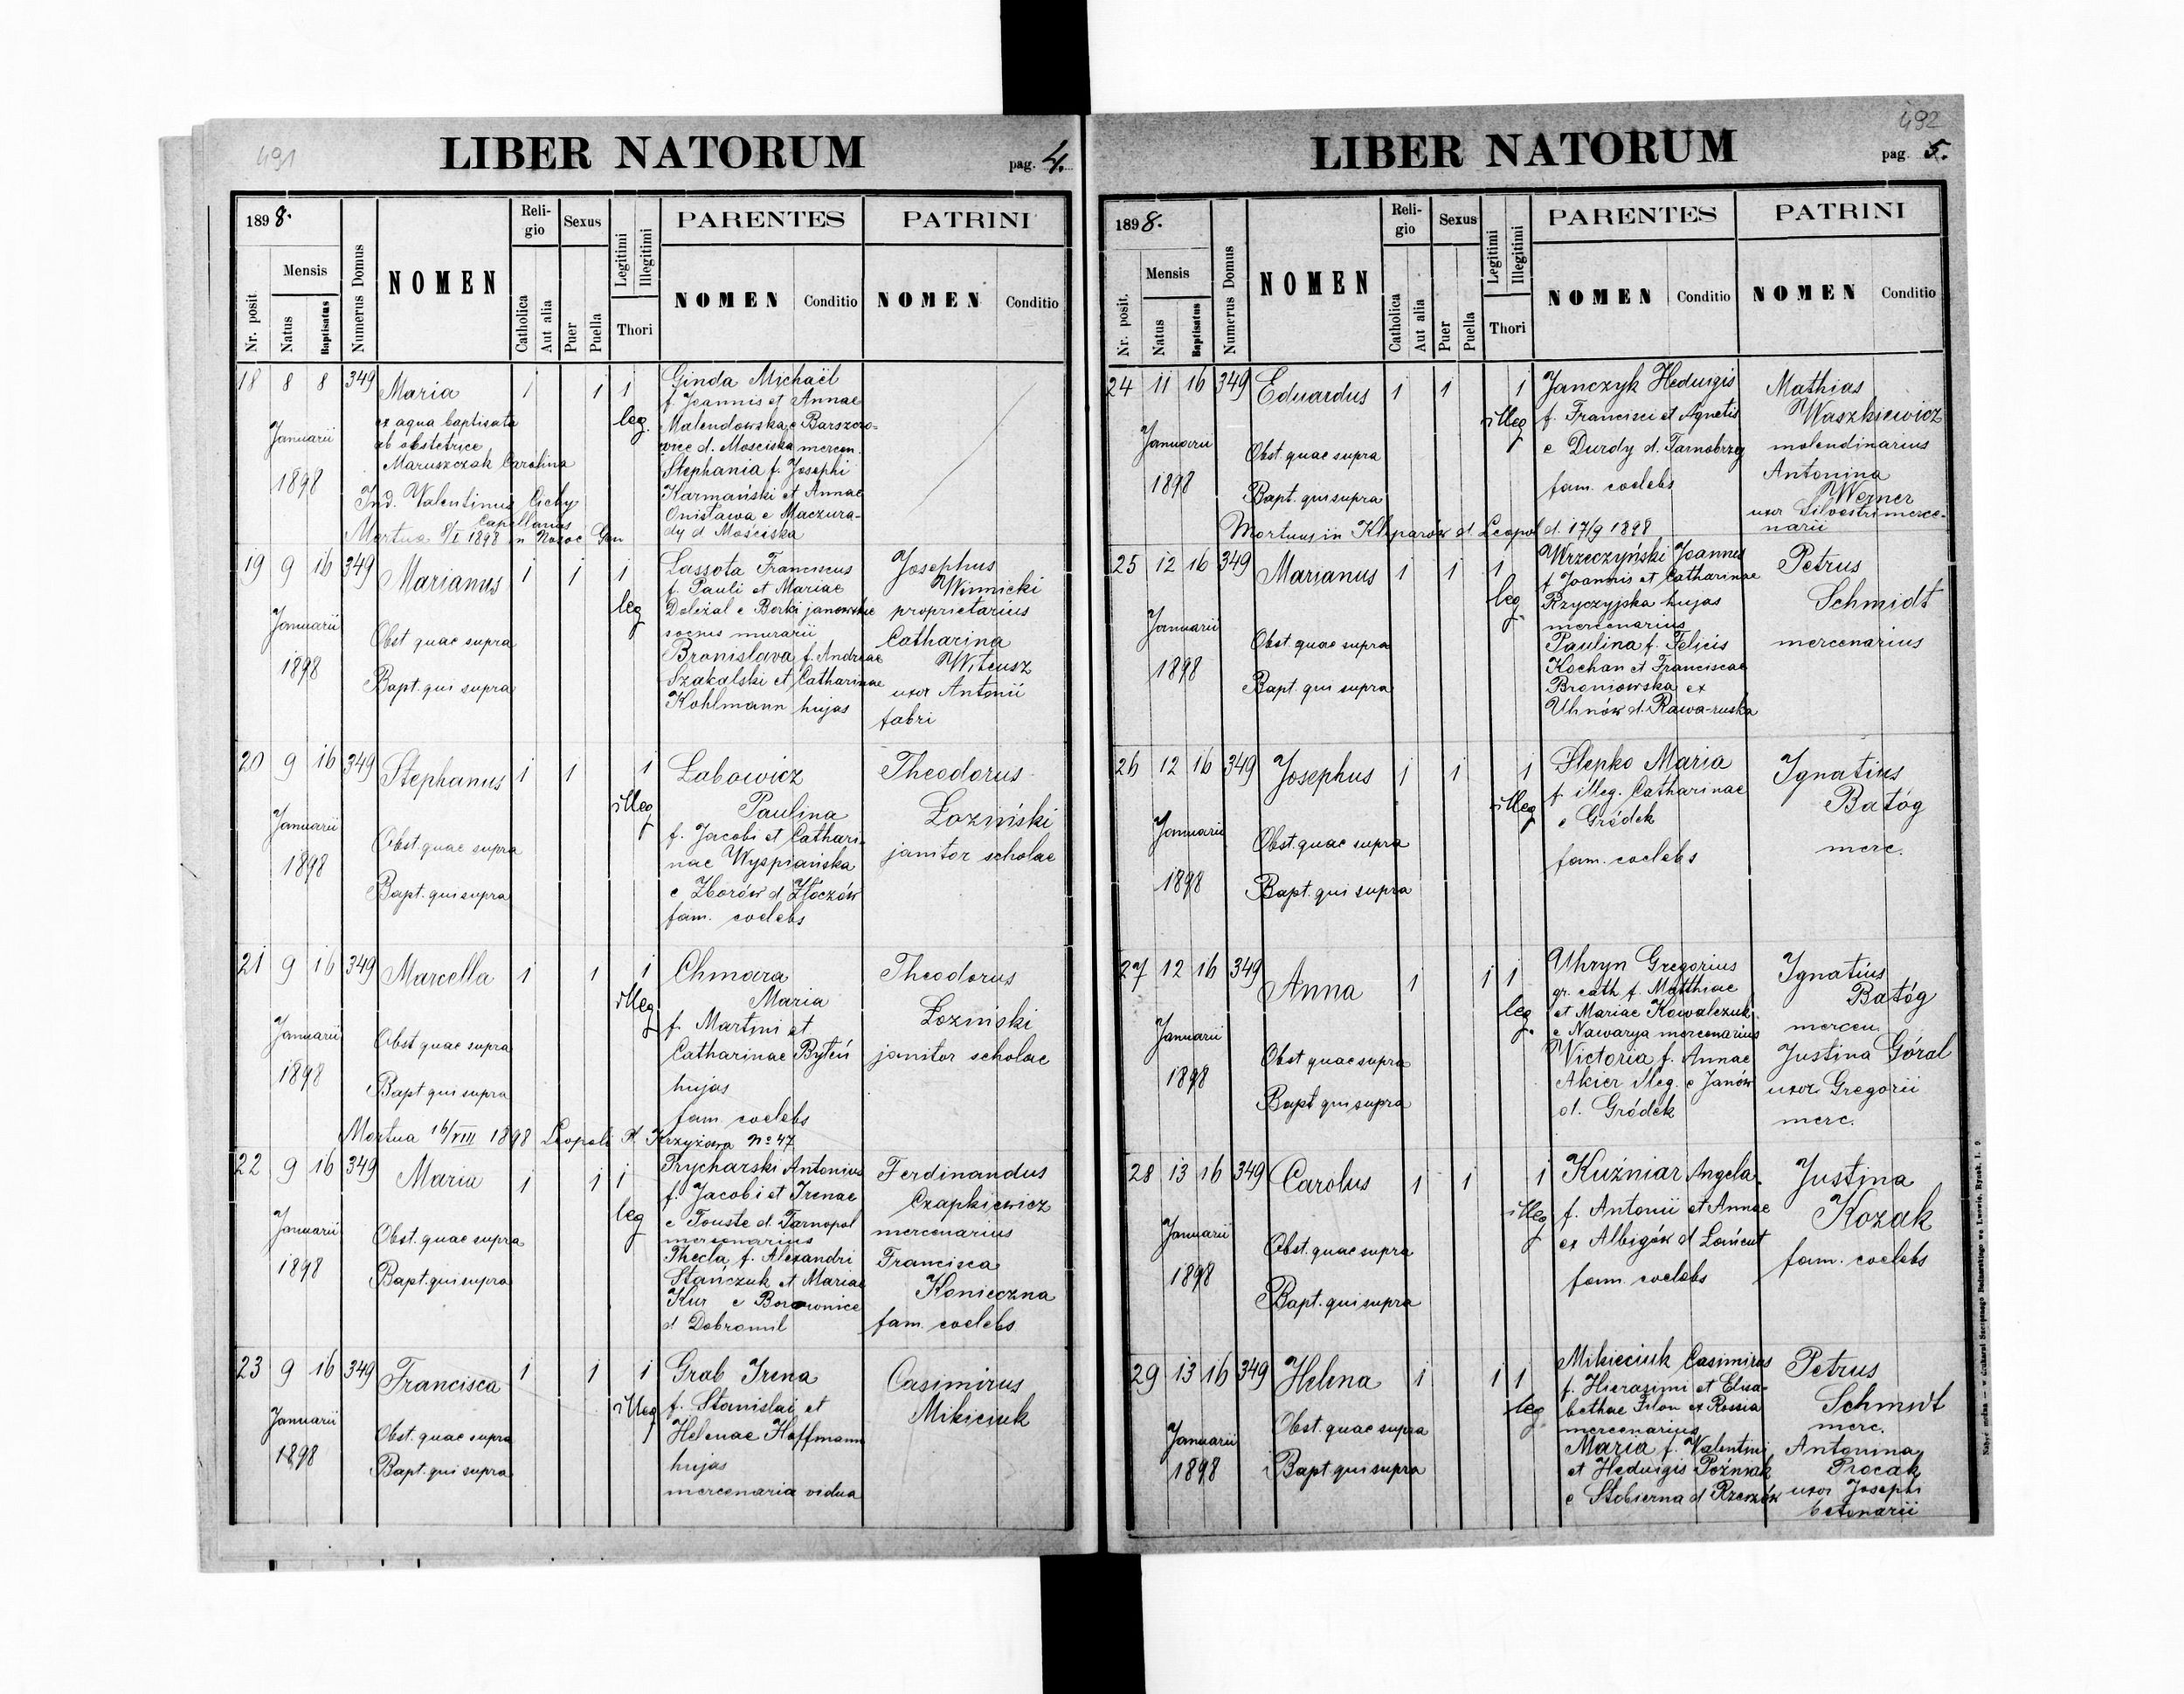 491
LIBER NATORUM
pag. 4.
1898.
Nr. posit.
Mensis
Natus
Baptisatus
Numerus Domus
NOMEN
Reli-
gio
Catholica
Aut alia
Sexus
Puer
Puella
Legitimi
Illegitimi
Thori
PARENTES
NOMEN
Conditio
PATRINI
NOMEN
Conditio
18 8 8 349 Maria 1 1 1
Januarii
1898
ex aqua baptisata
ab obstetrice
Maruszczak Carolina
Ind. Valentinus Cichy
Capellanus
Mortua 8/I 1898 in Nosoc Gen
leg.
Ginda Michaël
f. Joannis et Annae
Malendowska e Barszczo-
wice d. Mosciska mercen.
Stephania f. Josephi
Karmański et Annae
Onisława e Maczura-
dy d Mościska
19 9 16 349 Marianus 1 1 1
Januarii
1898
Obst quae supra
Bapt. qui supra
leg
Lassota Franciscus
f. Pauli et Mariae
Doleżal e Borki janowskie
socius murarii
Bronislava f. Andreae
Szakalski et Catharinae
Kohlmann hujas
Josephus
Winnicki
proprietarius
Catharina
Witeusz
uxor Antonii
fabri
20 9 16 349 Stephanus 1 1 1
Januarii
1898
Obst. quae supra
Bapt. qui supra
illeg
Labowicz
Paulina
f. Jacobi et Cathari-
nae Wyspiańska
e Zborów d Złoczów
fam. coelebs
Theodorus
Łoziński
janitor scholae
21 9 16 349 Marcella 1 1 1
Januarii
1898
Obst quae supra
Bapt qui supra
illeg
Chmara
Maria
f. Martini et
Catharinae Byteń
hujas
fam coelebs
Theodorus
Łoziński
janitor scholae
Mortua 16/VIII 1898 Leopoli Pl Krzyżowa No 47
22 9 16 349 Maria 1 1 1
Januarii
1898
Obst. quae supra
Bapt. qui supra
leg
Prycharski Antonius
f. Jacobi et Irenae
e Touste d. Tarnopol
mercenarius
Thecla f. Alexandri
Stańczuk et Mariae
Kur e Borownice
d Dobromil
Ferdinandus
Czapkiewicz
mercenarius
Francisca
Konieczna
fam. coelebs
23 9 16 349 Francisca 1 1 1
Januarii
1898
Obst. quae supra
Bapt. qui supra
illeg
Grab Irena
f. Stanislai et
Helenae Hoffmann
hujas
mercenaria vidua
Casimirus
Mikiciuk
492
LIBER NATORUM
pag. 5.
1898.
Nr. posit.
Mensis
Natus
Baptisatus
Numerus Domus
NOMEN
Reli-
gio
Catholica
Aut alia
Sexus
Puer
Puella
Legitimi
Illegitimi
Thori
PARENTES
NOMEN
Conditio
PATRINI
NOMEN
Conditio
24 11 16 349 Eduardus 1 1 1
Januarii
1898
Obst. quae supra
Bapt. qui supra
illeg
Janczyk Heduigis
f. Francisci et Agnetis
e Durdy d. Tarnobrzeg
fam. coelebs
Mathias
Waszkiewicz
molendinarius
Antonina
Werner
uxor Silvestri merce-
narii
Mortuus in Kleparów d. Leopol d. 17/9 1898
25 12 16 349 Marianus 1 1 1
Januarii
1898
Obst. quae supra
Bapt. qui supra
leg.
Wrzeczyński Joannes
f Joannis et Catharinae
Rzyczyjska hujas
mercenarius
Paulina f. Felicis
Kochan et Franciscae
Broniowska ex
Uhnów d. Rawa-ruska
Petrus
Schmidt
mercenarius
26 12 16 349 Josephus 1 1 1
Januarii
1898
Obst. quae supra
Bapt. qui supra
illeg
Slepko Maria
f. illeg. Catharinae
e Gródek
fam. coelebs
Ignatius
Batóg
merc.
27 12 16 349 Anna 1 1 1
Januarii
1898
Obst quae supra
Bapt qui supra
leg.
Uhryn Gregorius
gr. cath f. Matthiae
et Mariae Kowalczuk
e Nawarya mercenarius
Victoria f. Annae
Akier illeg. e Janów
d. Gródek
Ignatius
Batóg
mercen.
Justina Góral
uxor Gregorii
merc.
28 13 16 349 Carolus 1 1 1
Januarii
1898
Obst. quae supra
Bapt. qui supra
illeg
Kuźniar Angela
f. Antonii et Annae
ex Albigów d Łańcut
fam. coelebs
Justina
Kozak
fam. coelebs
29 13 16 349 Helena 1 1 1
Januarii
1898
Obst. quae supra
Bapt qui supra
leg
Mikieciuk Casimirus
f. Hierasimi et Elisa-
bethae Filon ex Rossia
mercenarius
Maria f. Valentini
et Heduigis Poźniak
e Stobierna d Rzeszów
Petrus
Schmidt
merc.
Antonina
Procak
uxor Josephi
betonarii